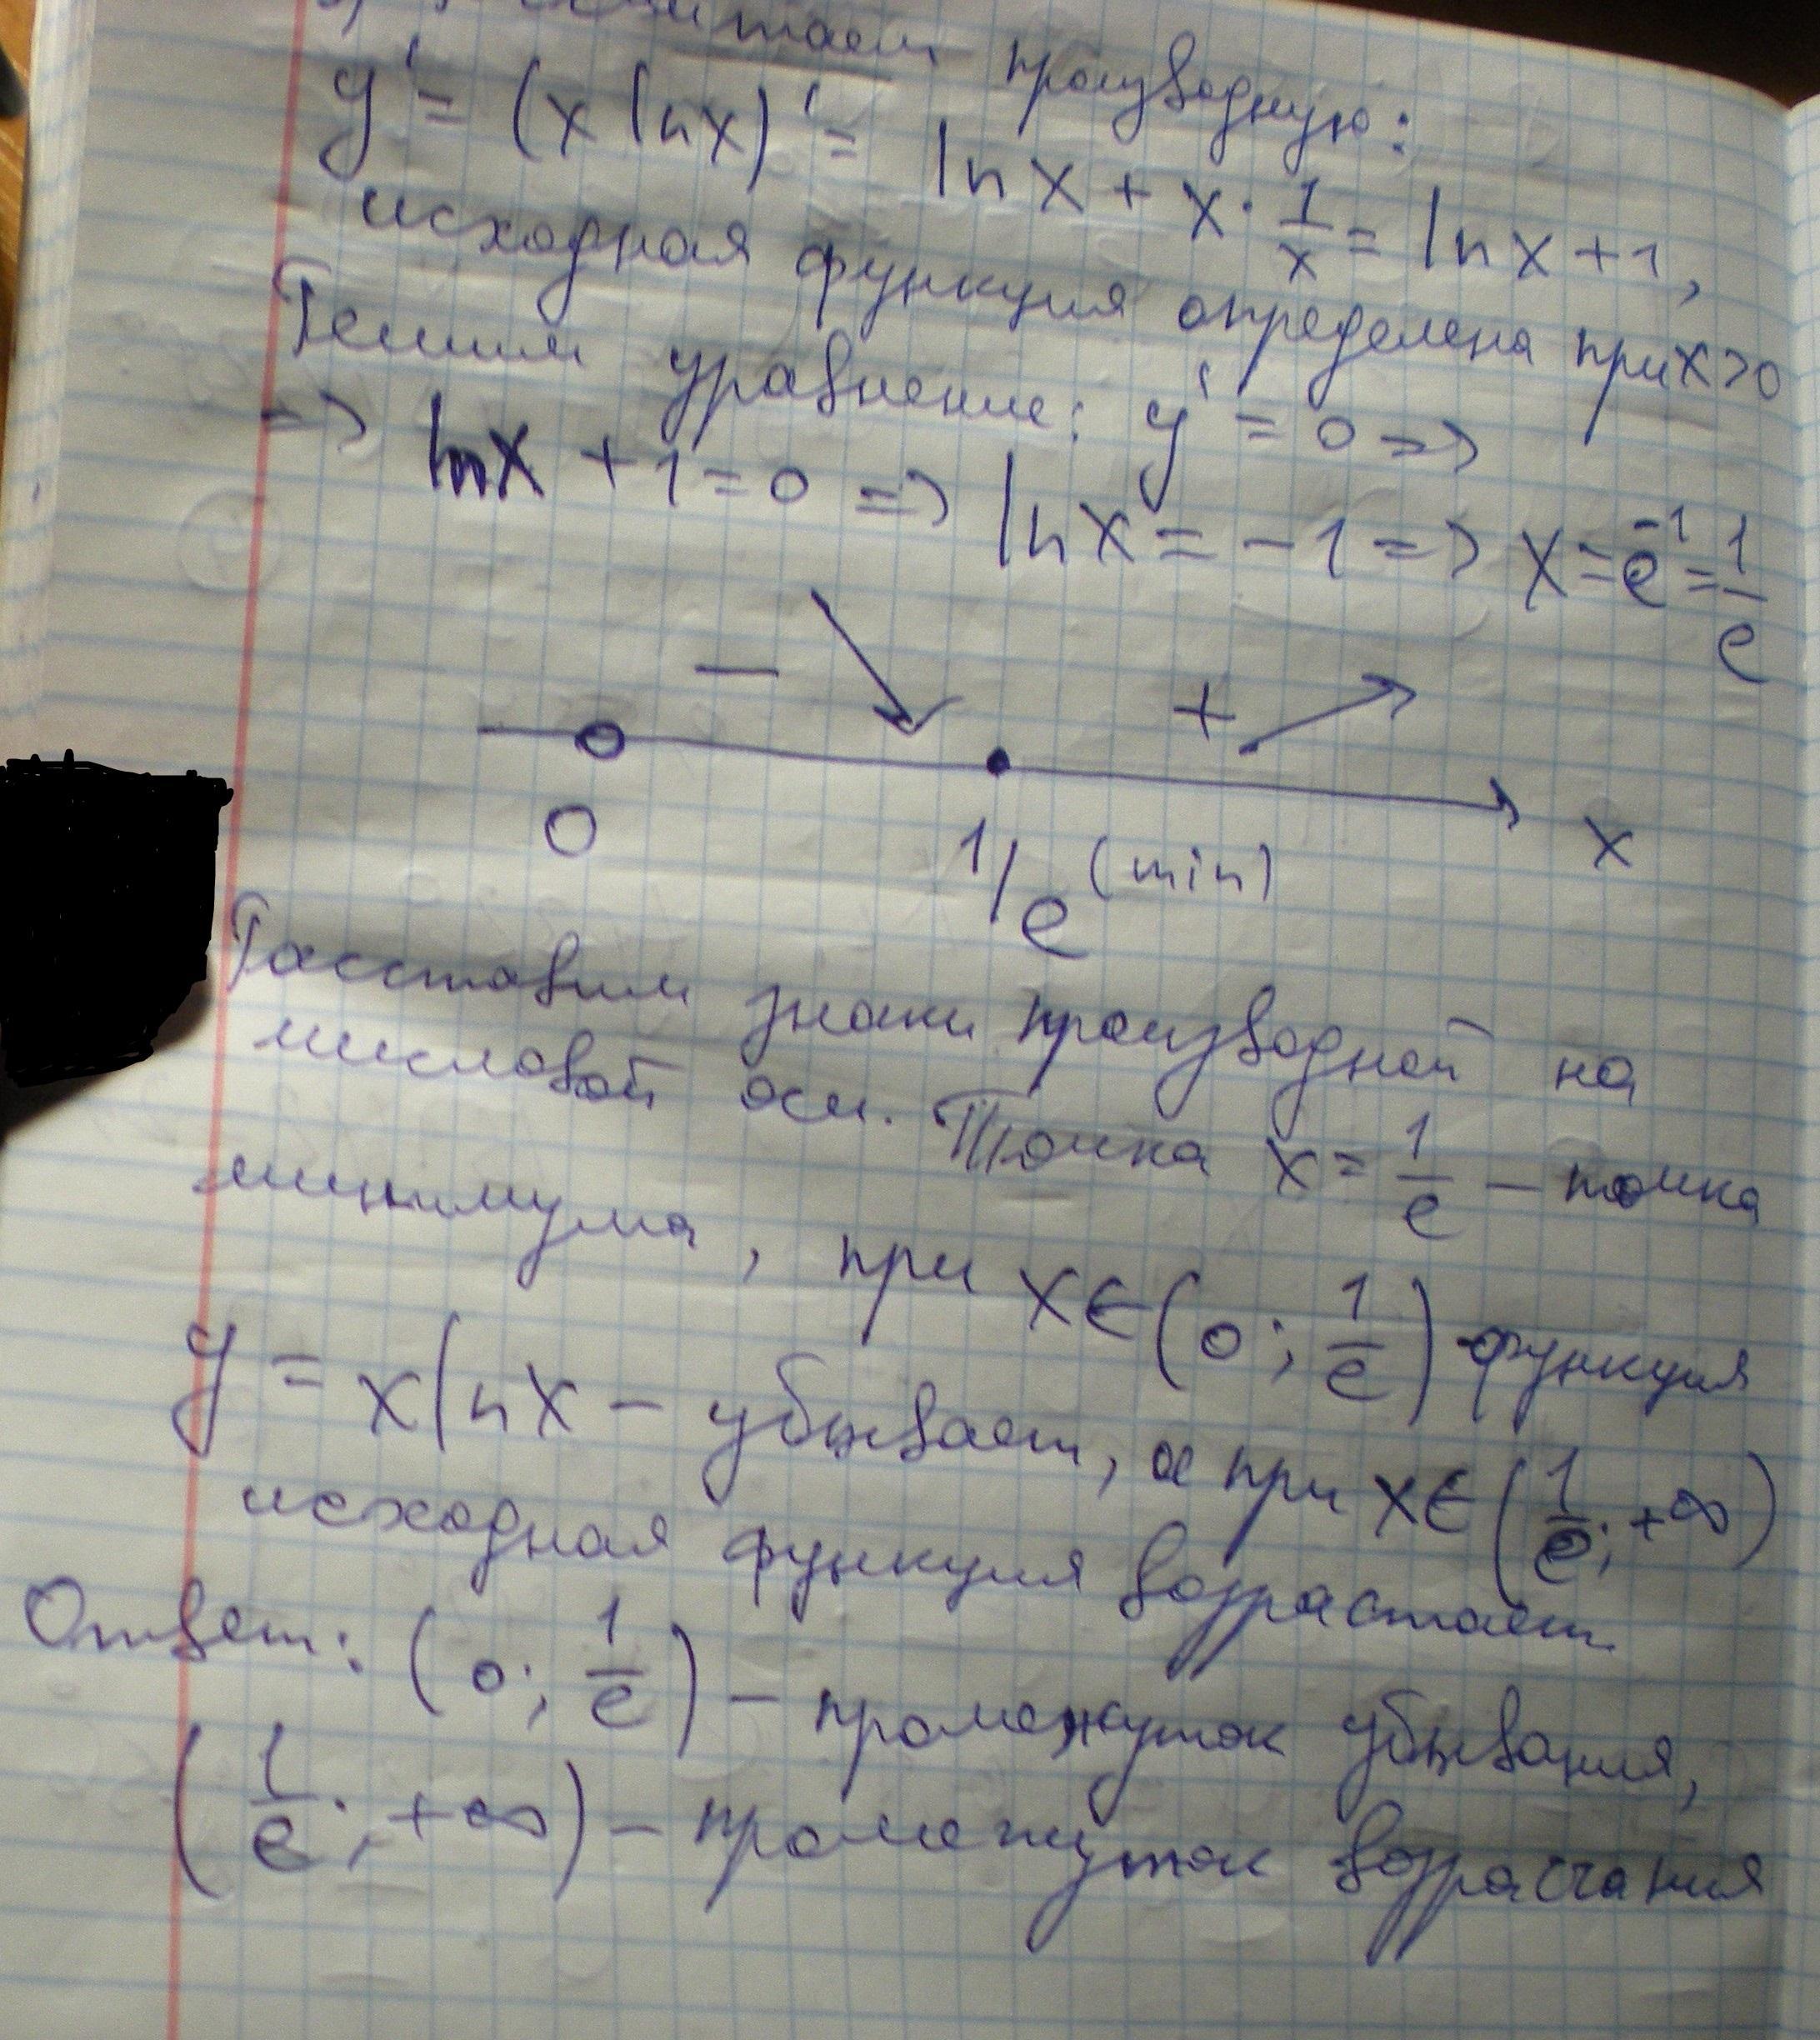 производную:
y' = (x ln x)' = ln x + x · 1/x = ln x + 1,
исходная функция определена при x>0
Решим уравнение: y' = 0 =>
=> ln x + 1 = 0 => ln x = -1 => x = e^-1 = 1/e
— +
0 1/e (min) x
Расставим знаки производной на
числовой оси. Точка x = 1/e – точка
минимума, при x ∈ (0; 1/e) функция
y = x ln x – убывает, а при x ∈ (1/e; +∞)
исходная функция возрастает
Ответ: (0; 1/e) – промежуток убывания,
(1/e; +∞) – промежуток возрастания